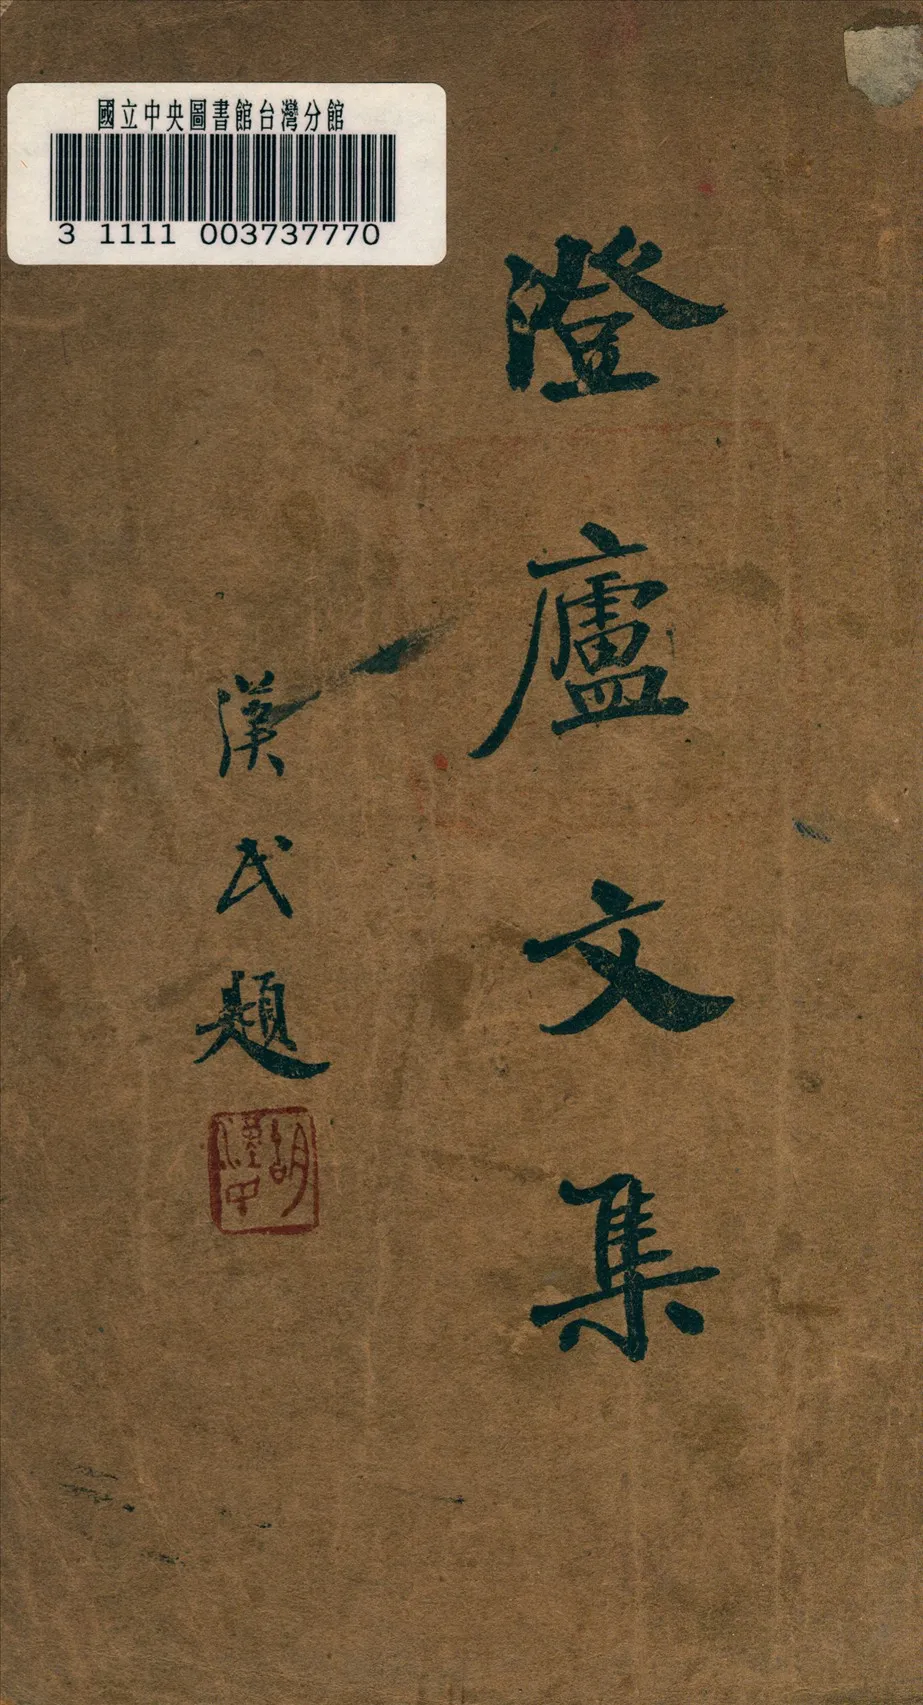 國立中央圖書館台灣分館
3 1111 003737770
澄廬文集
漢民題
胡漢民